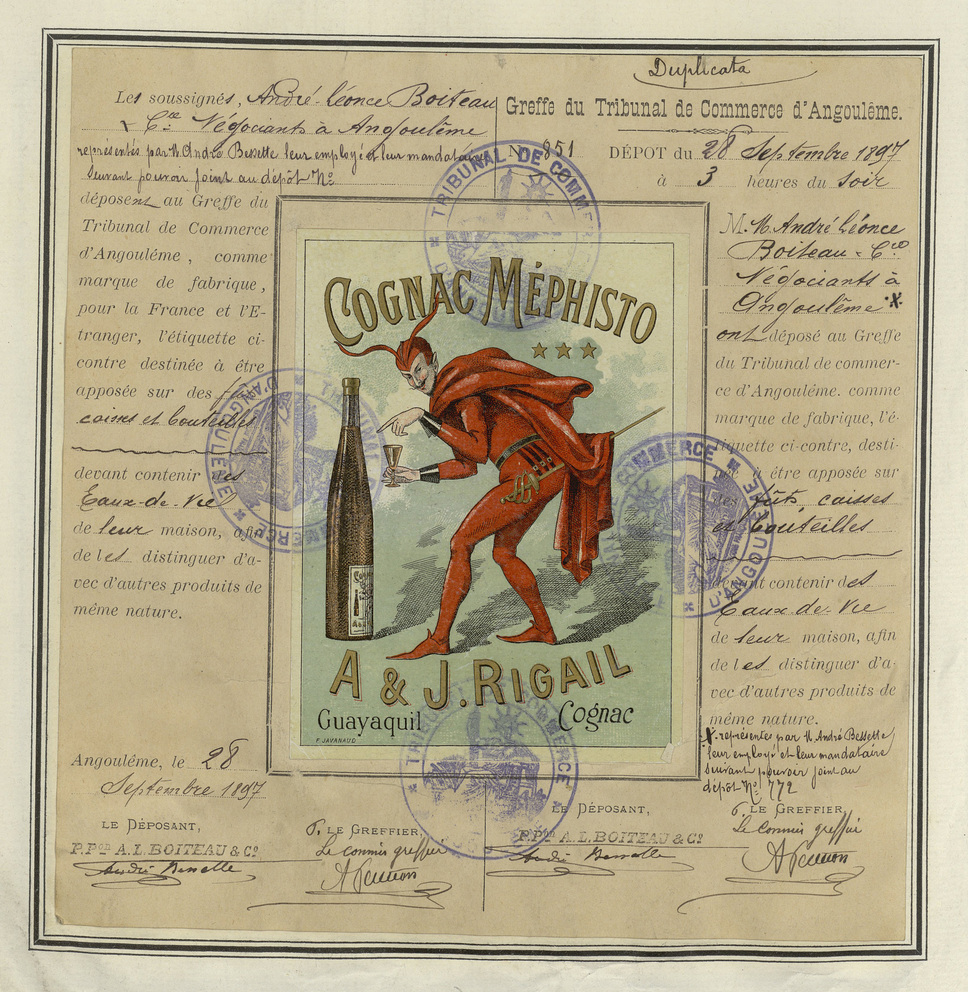 Duplicata
Les soussignés, André-Léonce Boiteau
& Cie Négociants à Angoulême
représentés par M. André Bessette leur employé et leur mandataire
suivant pouvoir joint au dépôt No
déposent au Greffe du
Tribunal de Commerce
d'Angoulême, comme
marque de fabrique,
pour la France et l'E-
tranger, l'étiquette ci-
contre destinée à être
apposée sur des fûts
caisses et bouteilles
devant contenir des
Eaux-de-Vie
de leur maison, afin
de les distinguer d'a-
vec d'autres produits de
même nature.
Angoulême, le 28
Septembre 1897
LE DÉPOSANT,
P.Pon A.L. BOITEAU & Co
André Bessette
P. LE GREFFIER,
Le Commis greffier
Greffe du Tribunal de Commerce d'Angoulême.
No 851 DÉPOT du 28 Septembre 1897
à 3 heures du Soir
M. M. André Léonce
Boiteau & Cie
Négociants à
Angoulême *
ont déposé au Greffe
du Tribunal de commer-
ce d'Angoulême. comme
marque de fabrique, l'é-
tiquette ci-contre, desti-
née à être apposée sur
des fûts, caisses
et bouteilles
devant contenir des
Eaux-de-Vie
de leur maison, afin
de les distinguer d'a-
vec d'autres produits de
même nature.
* représentés par M. André Bessette
leur employé et leur mandataire
suivant pouvoir joint au
dépôt No 772
LE DÉPOSANT,
P.Pon A.L. BOITEAU & Co
André Bessette
P. LE GREFFIER,
Le Commis greffier
COGNAC MÉPHISTO
A & J. RIGAIL
Guayaquil Cognac
F. JAVANAUD
TRIBUNAL DE COMMERCE
TRIBUNAL D'ANGOULEME
COMMERCE D'ANGOULEME
COMMERCE